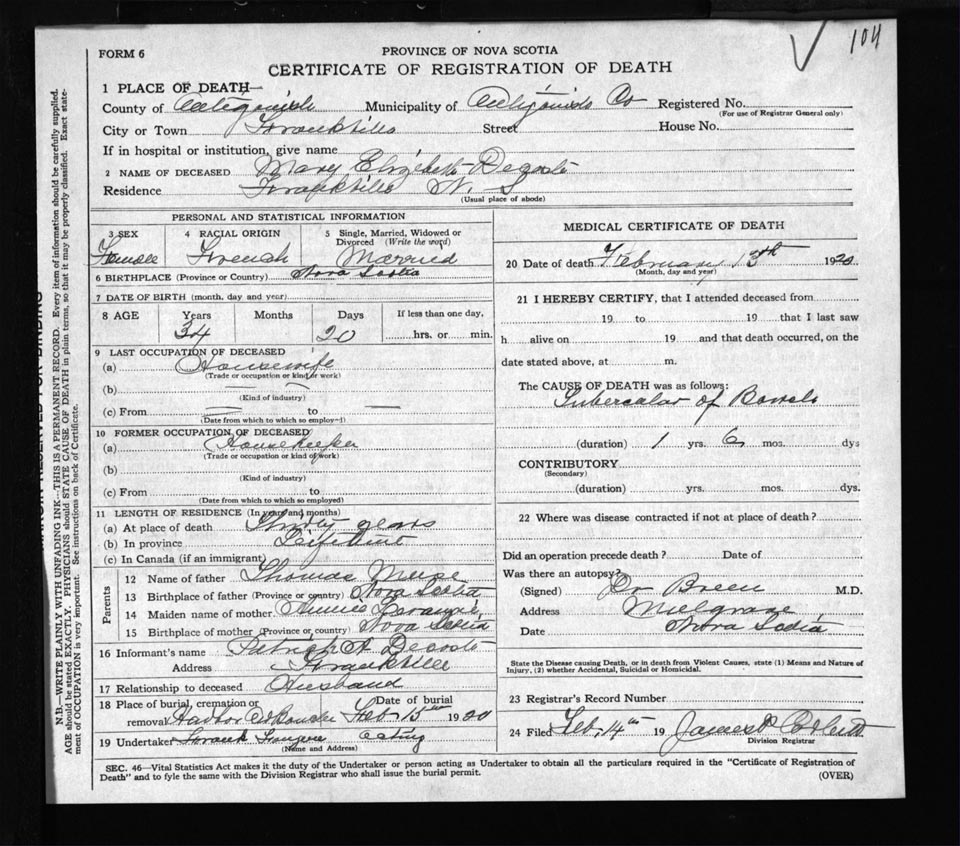 104
FORM 6
PROVINCE OF NOVA SCOTIA
CERTIFICATE OF REGISTRATION OF DEATH
1 PLACE OF DEATH—
County of Antigonish Municipality of Antigonish Co Registered No.
(For use of Registrar General only)
City or Town Frankville Street House No.
If in hospital or institution, give name
2 NAME OF DECEASED Mary Elizabeth Decoste
Residence Frankville N. S
(Usual place of abode)
PERSONAL AND STATISTICAL INFORMATION
3 SEX 4 RACIAL ORIGIN 5 Single, Married, Widowed or Divorced (Write the word)
Female French Married
6 BIRTHPLACE (Province or Country) Nova Scotia
7 DATE OF BIRTH (month, day and year)
8 AGE Years Months Days If less than one day,
34 20 hrs. or min.
9 LAST OCCUPATION OF DECEASED
(a) Housewife
(Trade or occupation or kind of work)
(b) — —
(Kind of industry)
(c) From — to —
(Date from which to which so employed)
10 FORMER OCCUPATION OF DECEASED
(a) Housekeeper
(Trade or occupation or kind of work)
(b)
(Kind of industry)
(c) From to
(Date from which to which so employed)
11 LENGTH OF RESIDENCE (In years and months)
(a) At place of death Thirty years
(b) In province Lifetime
(c) In Canada (if an immigrant)
Parents
12 Name of father Thomas
13 Birthplace of father (Province or country) Nova Scotia
14 Maiden name of mother Annie
15 Birthplace of mother (Province or country) Nova Scotia
16 Informant's name Patrick A Decoste
Address Frankville
17 Relationship to deceased Husband
18 Place of burial, cremation or removal Harbor Au Bouche Date of burial Feb 15th 1920
19 Undertaker Frank
(Name and Address)
MEDICAL CERTIFICATE OF DEATH
20 Date of death February 13th 1920
(Month, day and year)
21 I HEREBY CERTIFY, that I attended deceased from
19 to 19 that I last saw
h alive on 19 and that death occurred, on the
date stated above, at m.
The CAUSE OF DEATH was as follows:
Tubercular of Bowels
(duration) 1 yrs. 6 mos. dys
CONTRIBUTORY
(Secondary)
(duration) yrs. mos. dys.
22 Where was disease contracted if not at place of death?
Did an operation precede death? Date of
Was there an autopsy?
(Signed) Dr Breen M.D.
Address Mulgrave
Date Nova Scotia
State the Disease causing Death, or in death from Violent Causes, state (1) Means and Nature of
Injury, (2) whether Accidental, Suicidal or Homicidal.
23 Registrar's Record Number
24 Filed Feb. 14th 19 James P Corbett
Division Registrar
SEC. 46—Vital Statistics Act makes it the duty of the Undertaker or person acting as Undertaker to obtain all the particulars required in the "Certificate of Registration of
Death" and to fyle the same with the Division Registrar who shall issue the burial permit.
(OVER)
FOR BINDING
N.B.—WRITE PLAINLY WITH UNFADING INK—THIS IS A PERMANENT RECORD. Every item of information should be carefully supplied.
AGE should be stated EXACTLY. PHYSICIANS should STATE CAUSE OF DEATH in plain terms, so that it may be properly classified. Exact state-
ment of OCCUPATION is very important. See instructions on back of Certificate.